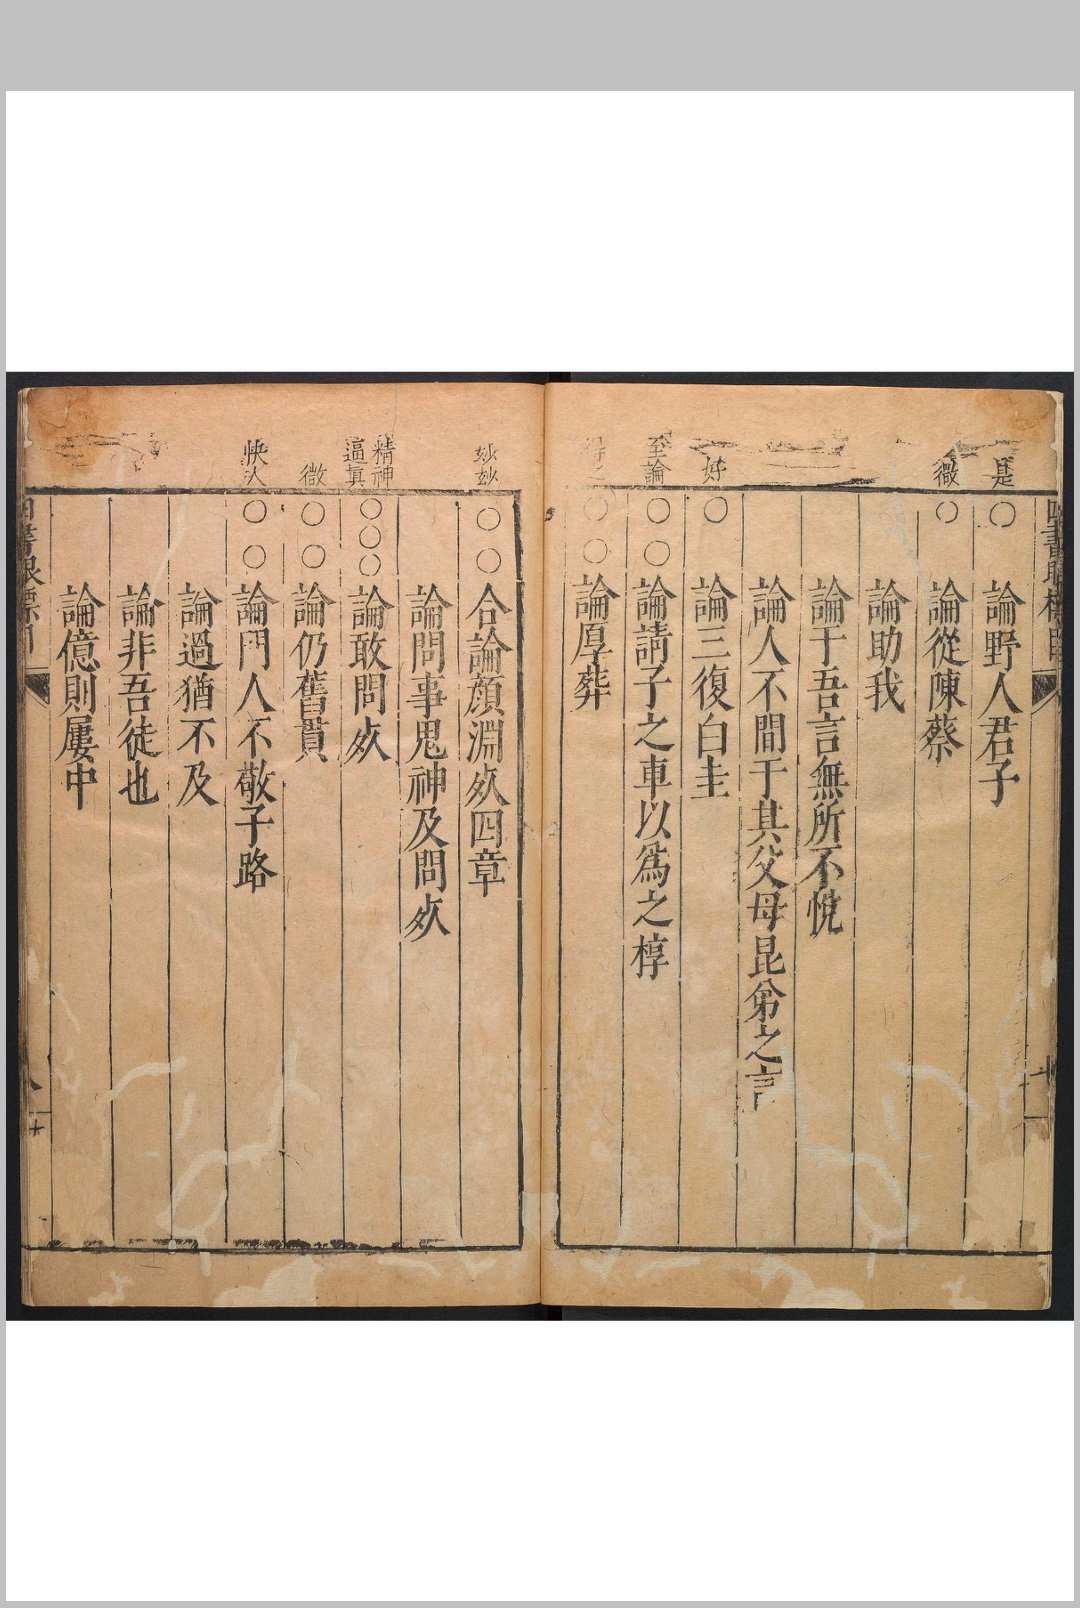 是
○　論野人君子
微
○　論從陳蔡
論助我
論于吾言無所不悅
論人不間于其父母昆弟之言
好
○　論三復白圭
至論
○○論請子之車以爲之椁
○○論厚葬
妙妙
○○合論顔淵死四章
論問事鬼神及問死
精神
逼眞
○○○論敢問死
微
○○論仍舊貫
快人
○○論門人不敬子路
論過猶不及
論非吾徒也
論億則屢中